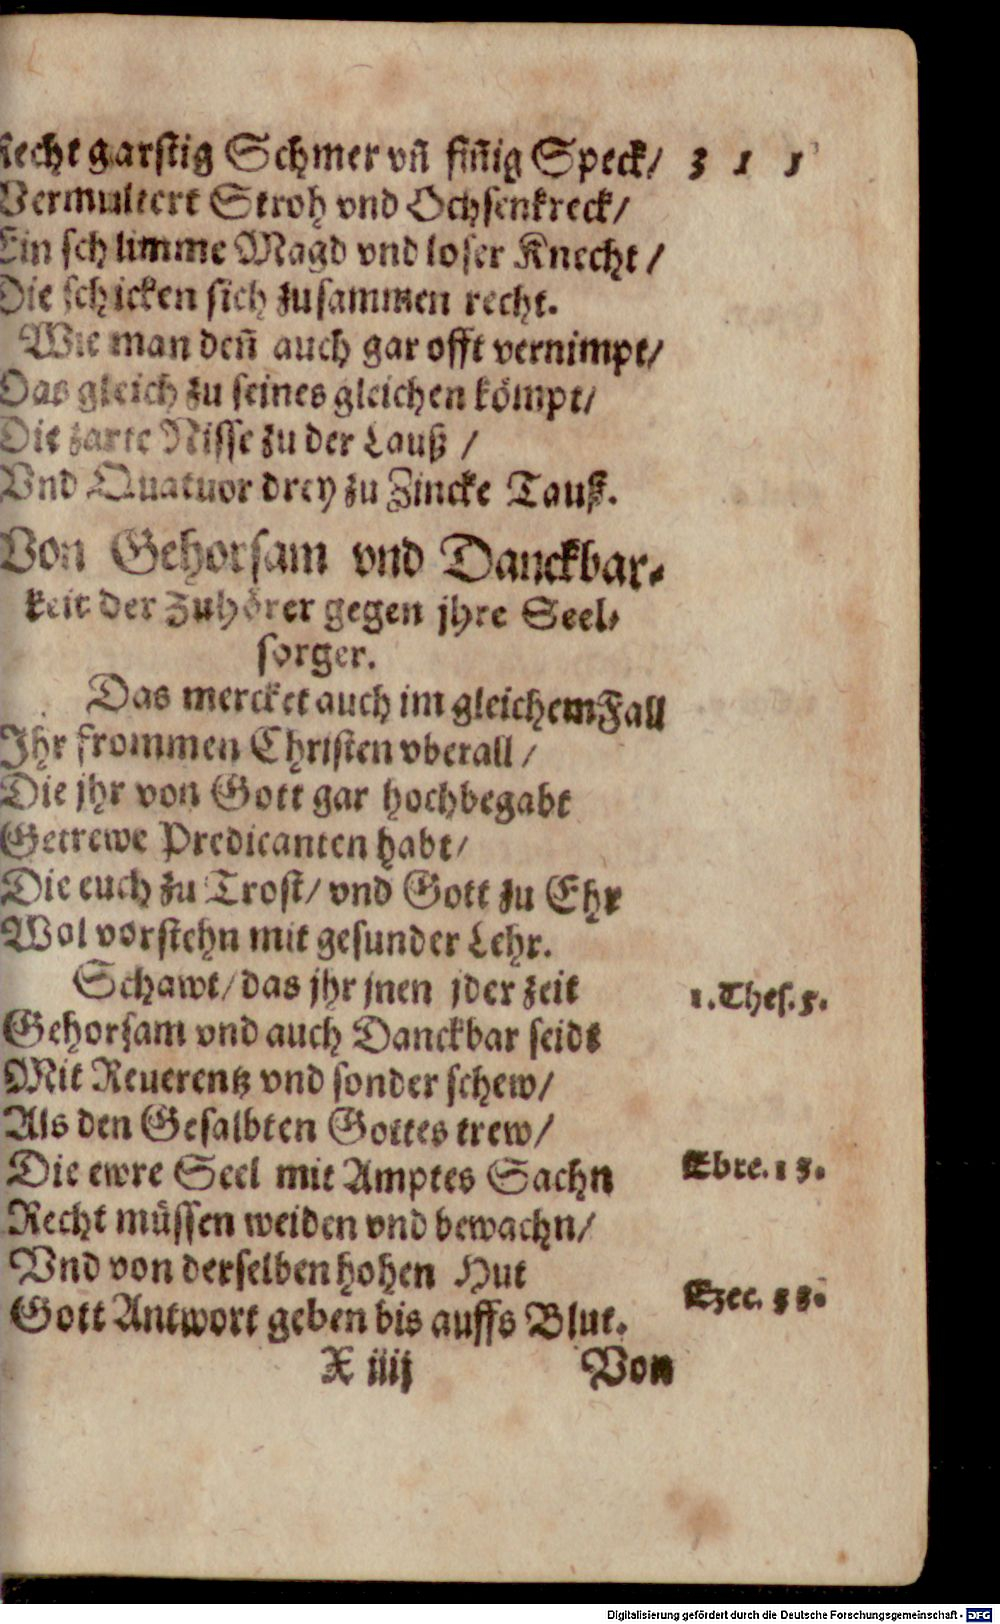 Recht garstig Schmer vñ fiñig Speck/ 311
Vermultert Stroh vnd Ochsenkreck/
Ein schlimme Magd vnd loser Knecht/
Die schicken sich zusammen recht.
Wie man deñ auch gar offt vernimpt/
Das gleich zu seines gleichen kömpt/
Die zarte Nisse zu der Lauß /
Vnd Quatuor drey zu Zincke Tauß.
Von Gehorsam vnd Danckbar-
keit der Zuhörer gegen jhre Seel-
sorger.
Das mercket auch im gleichem Fall
Jhr frommen Christen vberall/
Die jhr von Gott gar hochbegabt
Getrewe Predicanten habt/
Die euch zu Trost/ vnd Gott zu Ehr
Wol vorstehn mit gesunder Lehr.
Schawt/ das jhr jnen jder zeit 1. Thes. 5.
Gehorsam vnd auch Danckbar seidt
Mit Reuerentz vnd sonder schew/
Als den Gesalbten Gottes trew/
Die ewre Seel mit Amptes Sachn Ebre. 13.
Recht müssen weiden vnd bewachn/
Vnd von derselben hohen Hut
Gott Antwort geben bis auffs Blut. Ezec. 33.
X iiij Von
Digitalisierung gefördert durch die Deutsche Forschungsgemeinschaft - DFG